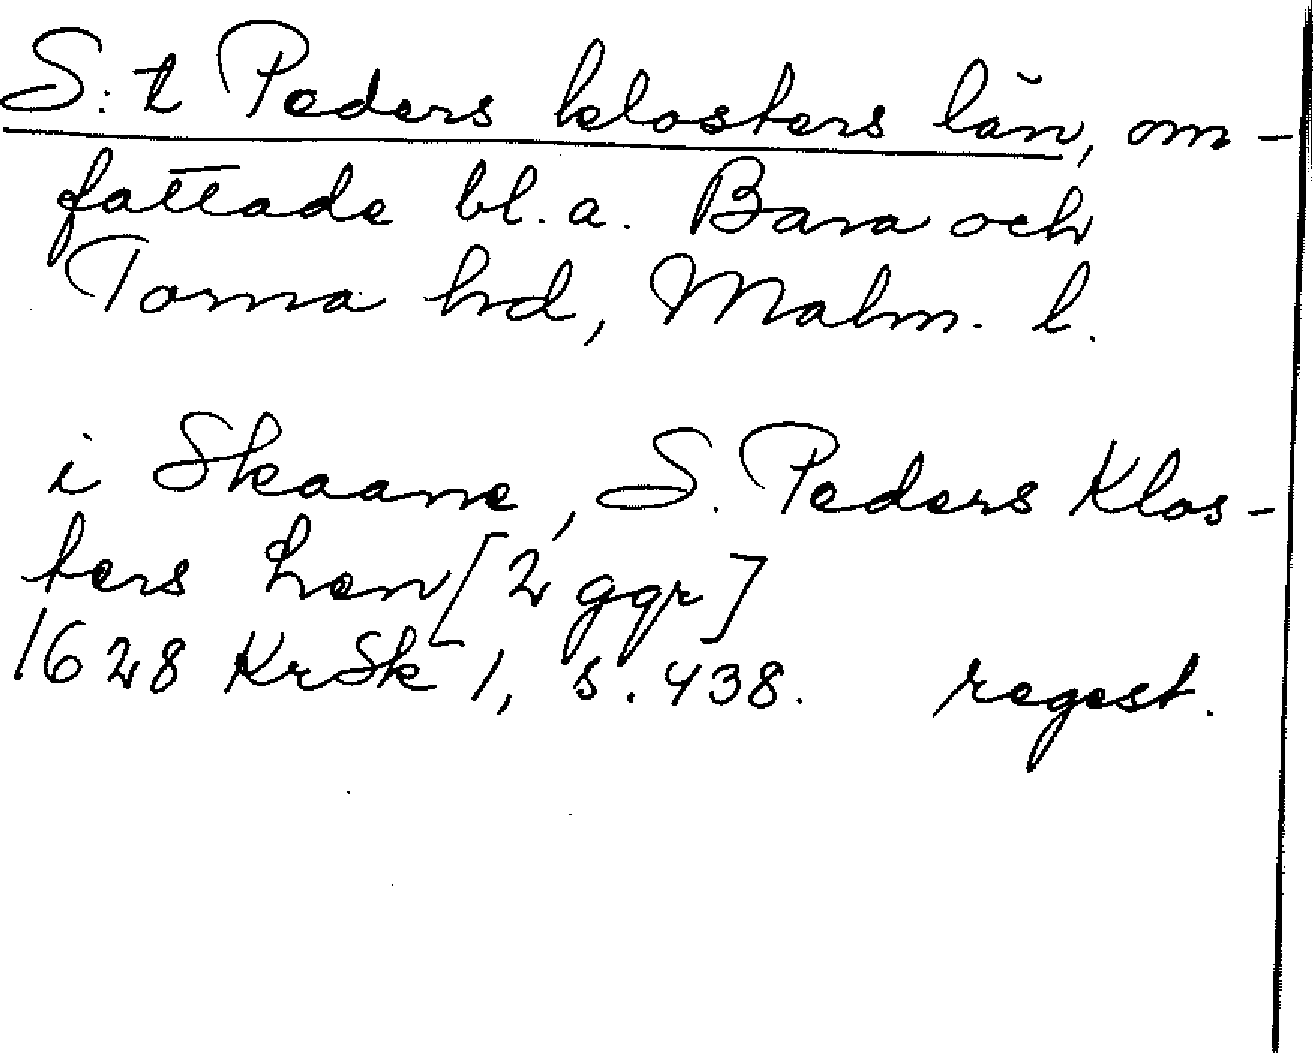 S:t Peders klosters län, om-
fattade bl.a. Bara och
Torna hd, Malm. l.
i Skaane, S. Peders Klos-
ters Len [2 ggr]
1628 KrSk 1, s. 438. regest.